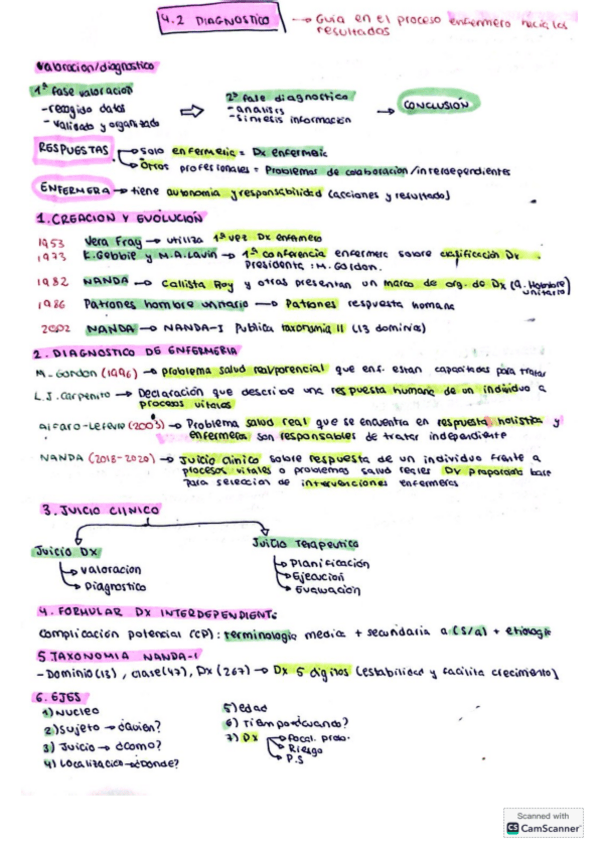 4.2 DIAGNOSTICO → Guía en el proceso enfermero hacia los
resultados
Valoracion/diagnostico
1ª fase valoracion
- recogida datos
- validado y organizado
2ª fase diagnostico
- analisis
- sintesis información
CONCLUSIÓN
RESPUESTAS
Solo enfermeric = Dx enfermeic
Otros profesionales = Problemas de colaboracion/interdependientes
ENFERMERA → tiene autonomia y responsabilidad (acciones y resultado)
1. CREACION Y EVOLUCIÓN
1953 Vera Fray → utiliza 1ª vez Dx enfermero
1973 K. Gebbie y M.A. Lavin → 1ª conferencia enfermera sobre clasificación Dx.
Presidenta: M. Gordon.
1982 NANDA → Callista Roy y otras presentan un marco de org. de Dx (9. Hombre
unitario)
1986 Patrones hombre unitario → Patrones respuesta humana
2002 NANDA → NANDA-I Publica taxonomia II (13 dominios)
2. DIAGNOSTICO DE ENFERMERIA
M. Gordon (1996) → problema salud real/porencial que enf. estan capacitadas para tratar
L.J. Carpenito → Declaración que describe una respuesta humana de un individuo a
procesos vitales
Alfaro-Lefevre (2003) → Problema salud real que se encuentra en respuesta holistica y
enfermera son responsables de tratar independiente
NANDA (2018-2020) → Juicio clinico sobre respuesta de un individuo frente a
procesos vitales o problemas salud reales Dx proporciona base
para seleccion de intervenciones enfermeras
3. JUICIO CLINICO
Juicio DX
Valoracion
Diagnostico
Juicio Terapeutico
Planificación
Ejecución
Evaluacion
4. FORMULAR DX INTERDEPENDIENT:
Complicación potencial (CP): terminologia medica + secundaria a (S/a) + etiologia
5 TAXONOMIA NANDA-I
- Dominio (13), clase (47), Dx (267) → Dx 5 digitos (estabilidad y facilita crecimiento)
6. EJES
1) Nucleo
2) Sujeto → ¿Quien?
3) Juicio → ¿Como?
4) Localizacion → ¿Donde?
5) Edad
6) Tiempo → ¿Cuando?
7) Dx
Focal. Probl.
Riesgo
P.S
Scanned with
CS CamScanner